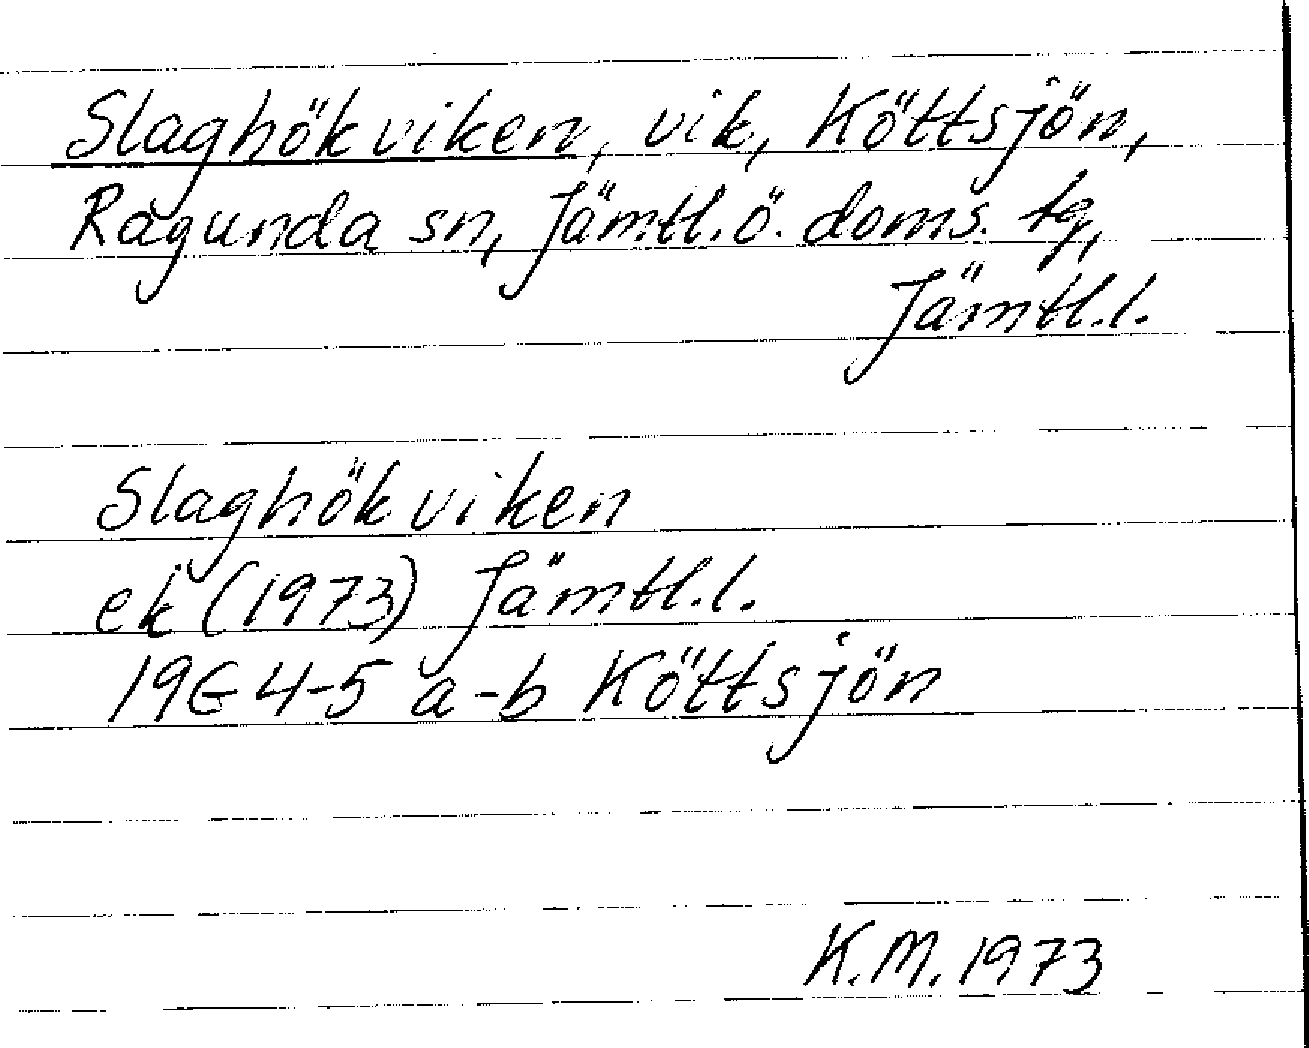 Slaghökviken, vik, Köttsjön,
Ragunda sn, Jämtl. ö. doms. tg,
Jämtl.l.
Slaghökviken
ek (1973) Jämtl.l.
19G 4-5 a-b Köttsjön
K.M. 1973